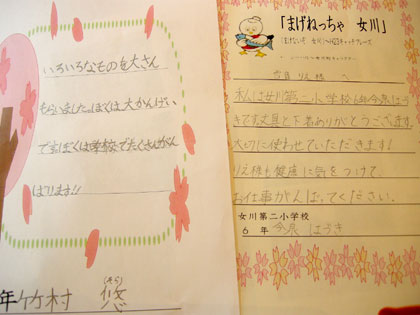 いろいろなものを大さん
もらいました。ぼくは大かんげい
です。ぼくは学校でたくさんがん
ばります!!
年 竹村 悠
(そら)
「まげねっちゃ 女川」
りえ 様 へ
私は女川第二小学校6年今泉はる
きです。文具と下着ありがとうございます。
大切に使わせていただきます!
りえ様も健康に気をつけて、
お仕事がんばってください。
女川第二小学校
6 年 今泉 はるき